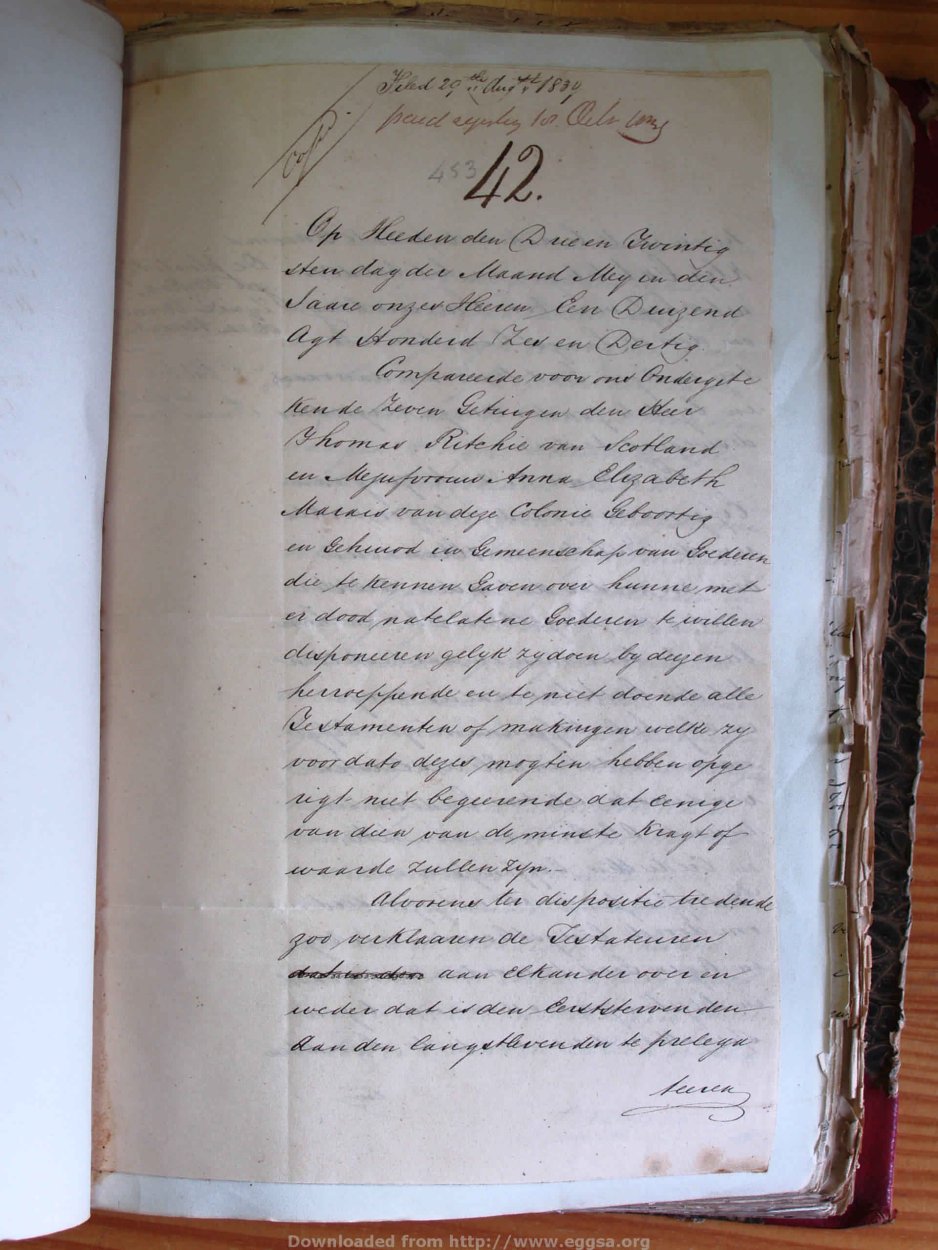 Filed 29th Augst 1839
453
42.
Op Heeden den Drie en Twintig
sten dag der Maand Mey in den
Jaare onzes Heeren Een Duizend
Agt Honderd Zes en Dertig.
Compareerde voor ons Ondergete
kende Zeven Getuigen den Heer
Thomas Ritchie van Scotland
en Mejufvrouw Anna Elizabeth
Marais van deze Colonie Geboortig
en Gehuwd in Gemeenschap van Goederen
die te kennen Gaven over hunne met
er dood natelatene Goederen te willen
disponeeren gelyk zy doen by dezen
herroeppende en te niet doende alle
Testamenten of makingen welke zy
voor dato dezes mogten hebben opge
rigt niet begeerende dat eenige
van dien van de minste kragt of
waarde zullen zyn.
Alvorens ter dispositie tredende
zoo verklaaren de Testateuren
aan elkander over en
weder dat is den Eerststervenden
aan den langstlevenden te prelega
teeren
Downloaded from http://www.eggsa.org